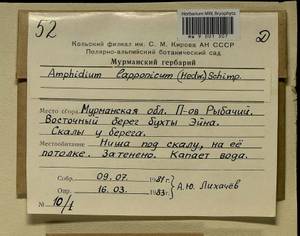 Herbarium MW, Bryophyta
MW 9 001 307
52
Кольский филиал им. С. М. Кирова АН СССР
Полярно-альпийский ботанический сад
Мурманский гербарий
Amphidium Lapponicum (Hedw.) Schimp.
Место сбора Мурманская обл. П-ов Рыбачий.
Восточный берег бухты Эйна.
Скалы у берега.
Местообитание Ниша под скалу, на её
потолке. Затенено. Капает вода.
Собр. 09.07 1981 г.
Опр. 16.03 1983 г. А.Ю. Лихачёв
№ 10/1